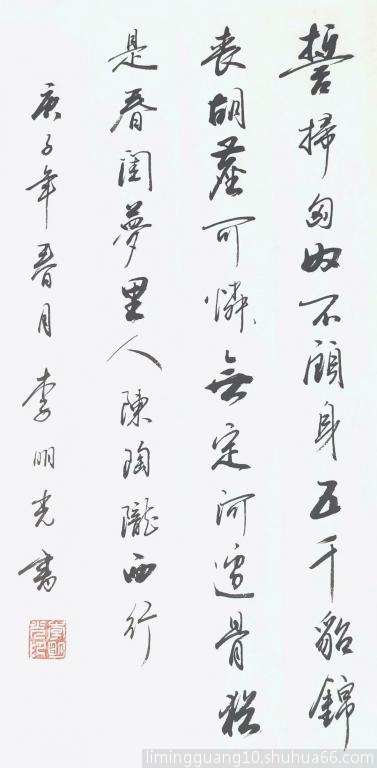 誓掃匈奴不顧身五千貂錦
喪胡塵可憐無定河邊骨猶
是春閨夢里人陳陶隴西行
庚子年春月李明光書
limingguang10.shuhua66.com